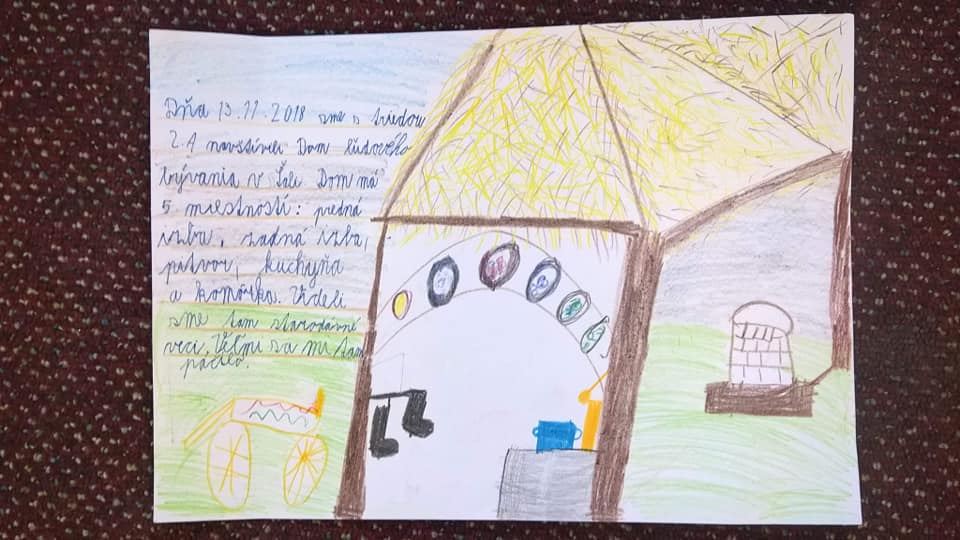 Dňa 13.11.2018 sme s triedou
2.A navštívili Dom ľudového
bývania v Šali Dom má
5 miestností: predná
izba, zadná izba,
pitvor, kuchyňa
a komôrka. Videli
sme tam starodávné
veci. Veľmi sa mi tam
páčilo.